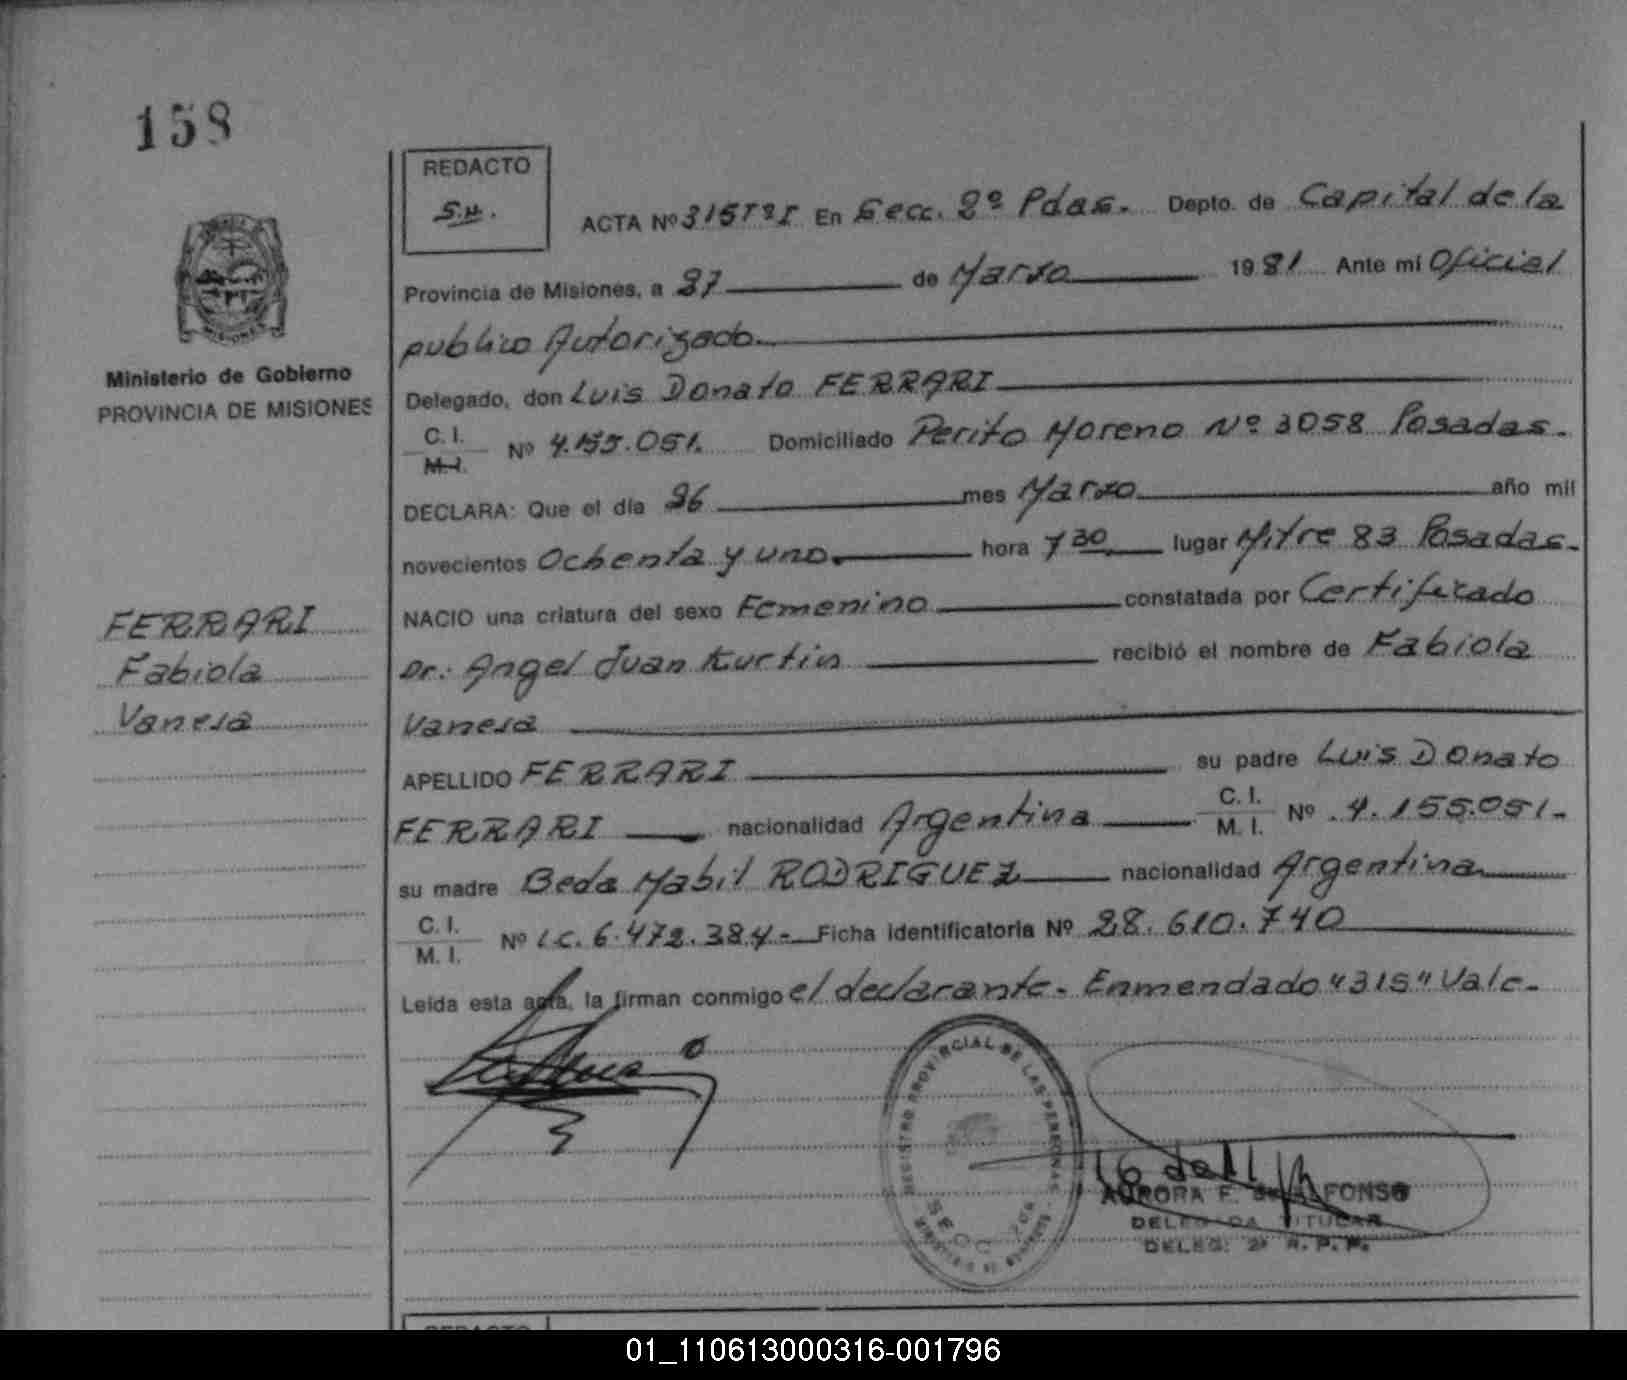 158
REDACTO
S.H.
ACTA Nº 315 Tº I En Secc. 2º Pdas. Depto. de Capital de la
Provincia de Misiones, a 27 de Marzo 1981 Ante mi Oficial
publico Autorizado.
Delegado, don Luis Donato FERRARI
C. I.
M. I.
Nº 4.155.051. Domiciliado Perito Moreno Nº 3058 Posadas.
DECLARA: Que el día 26 mes Marzo año mil
novecientos Ochenta y uno. hora 7 30 lugar Mitre 83 Posadas.
NACIO una criatura del sexo Femenino constatada por Certificado
Dr. Angel Juan Kurtin recibió el nombre de Fabiola
Vanesa
APELLIDO FERRARI su padre Luis Donato
FERRARI nacionalidad Argentina C. I.
M. I. Nº 4.155.051.-
su madre Beda Mabil RODRIGUEZ nacionalidad Argentina
C. I.
M. I.
Nº L.C. 6.472.384.- Ficha identificatoria Nº 28.610.740
Leída esta acta, la firman conmigo el declarante. Enmendado "315" Vale.
Ministerio de Gobierno
PROVINCIA DE MISIONES
FERRARI
Fabiola
Vanesa
REGISTRO PROVINCIAL DE LAS PERSONAS
SECC
AURORA F. DE ALFONSO
DELEGADA TITULAR
DELEG. 2ª R. P. P.
REDACTO
01_110613000316-001796